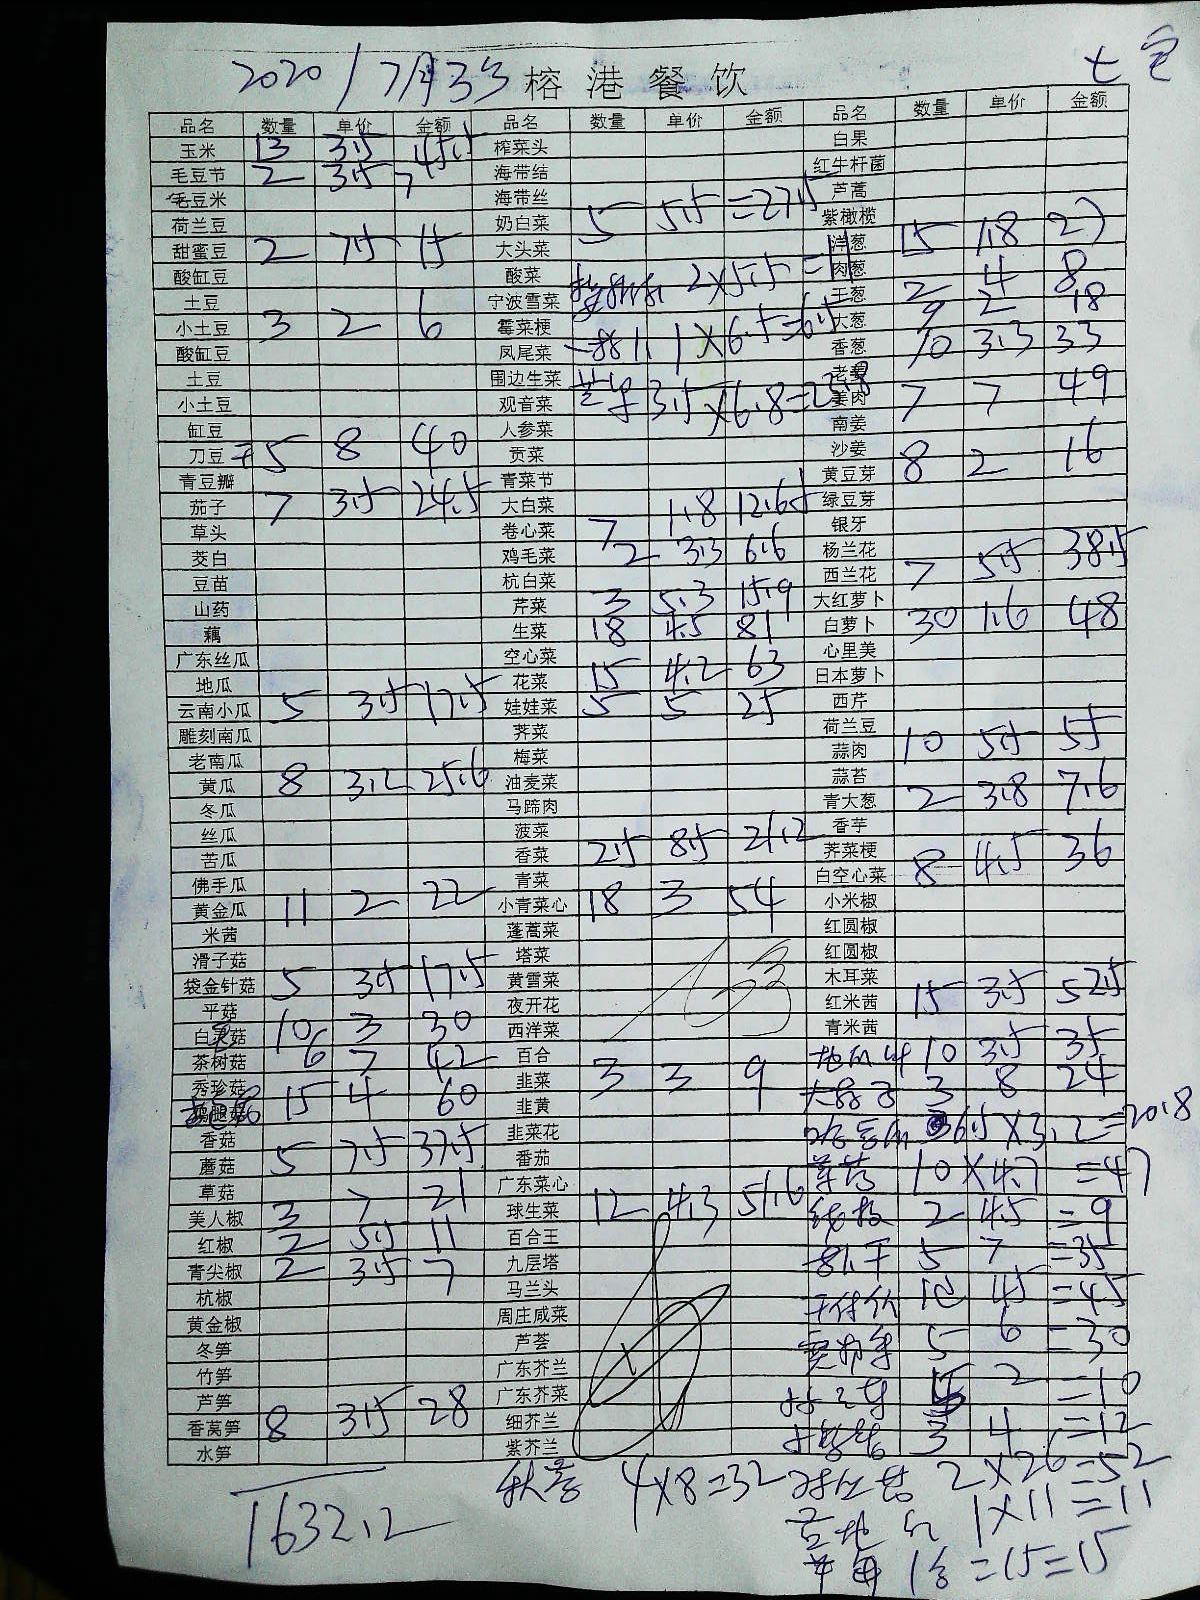 2020/7月3号 榕港餐饮 七宝
品名 数量 单价 金额 品名 数量 单价 金额 品名 数量 单价 金额
玉米 13 3.5 45.5 榨菜头 白果
毛豆节 2 3.5 7 海带结 红牛杆菌
毛豆米 海带丝 芦蒿
荷兰豆 奶白菜 5 5.5 =27.5 紫橄榄
甜蜜豆 2 7.5 15 大头菜 洋葱 15 1.8 27
酸缸豆 酸菜 2×5.5=11 肉葱 2 4 8
土豆 宁波雪菜 干葱 9 2 18
小土豆 3 2 6 霉菜梗 1×6.5=6.5 大葱
酸缸豆 凤尾菜 香葱 10 3.3 33
土豆 围边生菜 老姜
小土豆 观音菜 3.5×6.8=23.8 姜肉 7 7 49
缸豆 人参菜 南姜
刀豆 5 8 40 贡菜 沙姜
青豆瓣 青菜节 黄豆芽 8 2 16
茄子 7 3.5 24.5 大白菜 绿豆芽
草头 卷心菜 7 1.8 12.65 银牙
茭白 鸡毛菜 2 3.3 6.6 杨兰花
豆苗 杭白菜 西兰花 7 5.5 38.5
山药 芹菜 3 5.3 15.9 大红萝卜
藕 生菜 18 4.5 81 白萝卜 30 1.6 48
广东丝瓜 空心菜 心里美
地瓜 花菜 15 4.2 63 日本萝卜
云南小瓜 5 3.5 17.5 娃娃菜 5 5 25 西芹
雕刻南瓜 荠菜 荷兰豆
老南瓜 梅菜 蒜肉 10 5.5 55
黄瓜 8 3.2 25.6 油麦菜 蒜苔
冬瓜 马蹄肉 青大葱 2 3.8 7.6
丝瓜 菠菜 香芋
苦瓜 香菜 2.5 8.5 21.2 荠菜梗
佛手瓜 青菜 白空心菜 8 4.5 36
黄金瓜 11 2 22 小青菜心 18 3 54 小米椒
米茜 蓬蒿菜 红圆椒
滑子菇 塔菜 红圆椒
袋金针菇 5 3.5 17.5 黄雪菜 木耳菜
平菇 夜开花 红米茜 15 3.5 52.5
白灵菇 10 3 30 西洋菜 青米茜
茶树菇 6 7 42 百合 10 3.5 35
秀珍菇 韭菜 3 3 9 3 8 24
鸡腿菇 15 4 60 韭黄
香菇 韭菜花 6.5×3.2=20.8
蘑菇 5 7.5 37.5 番茄 10×4.7 =47
草菇 7 21 广东菜心
美人椒 3 球生菜 12 4.3 51.6 2 4.5 =9
红椒 2 5.5 11 百合王
青尖椒 2 3.5 7 九层塔 5 7 =35
杭椒 马兰头 10 4.5 =45
黄金椒 周庄咸菜
冬笋 芦荟 5 6 =30
竹笋 广东芥兰
芦笋 广东芥菜 5 2 =10
香莴笋 8 3.5 28 细芥兰 3 4 =12
水笋 紫芥兰
秋葵 4×8=32 2×26=52
1632.2 1×11=11
=15=15